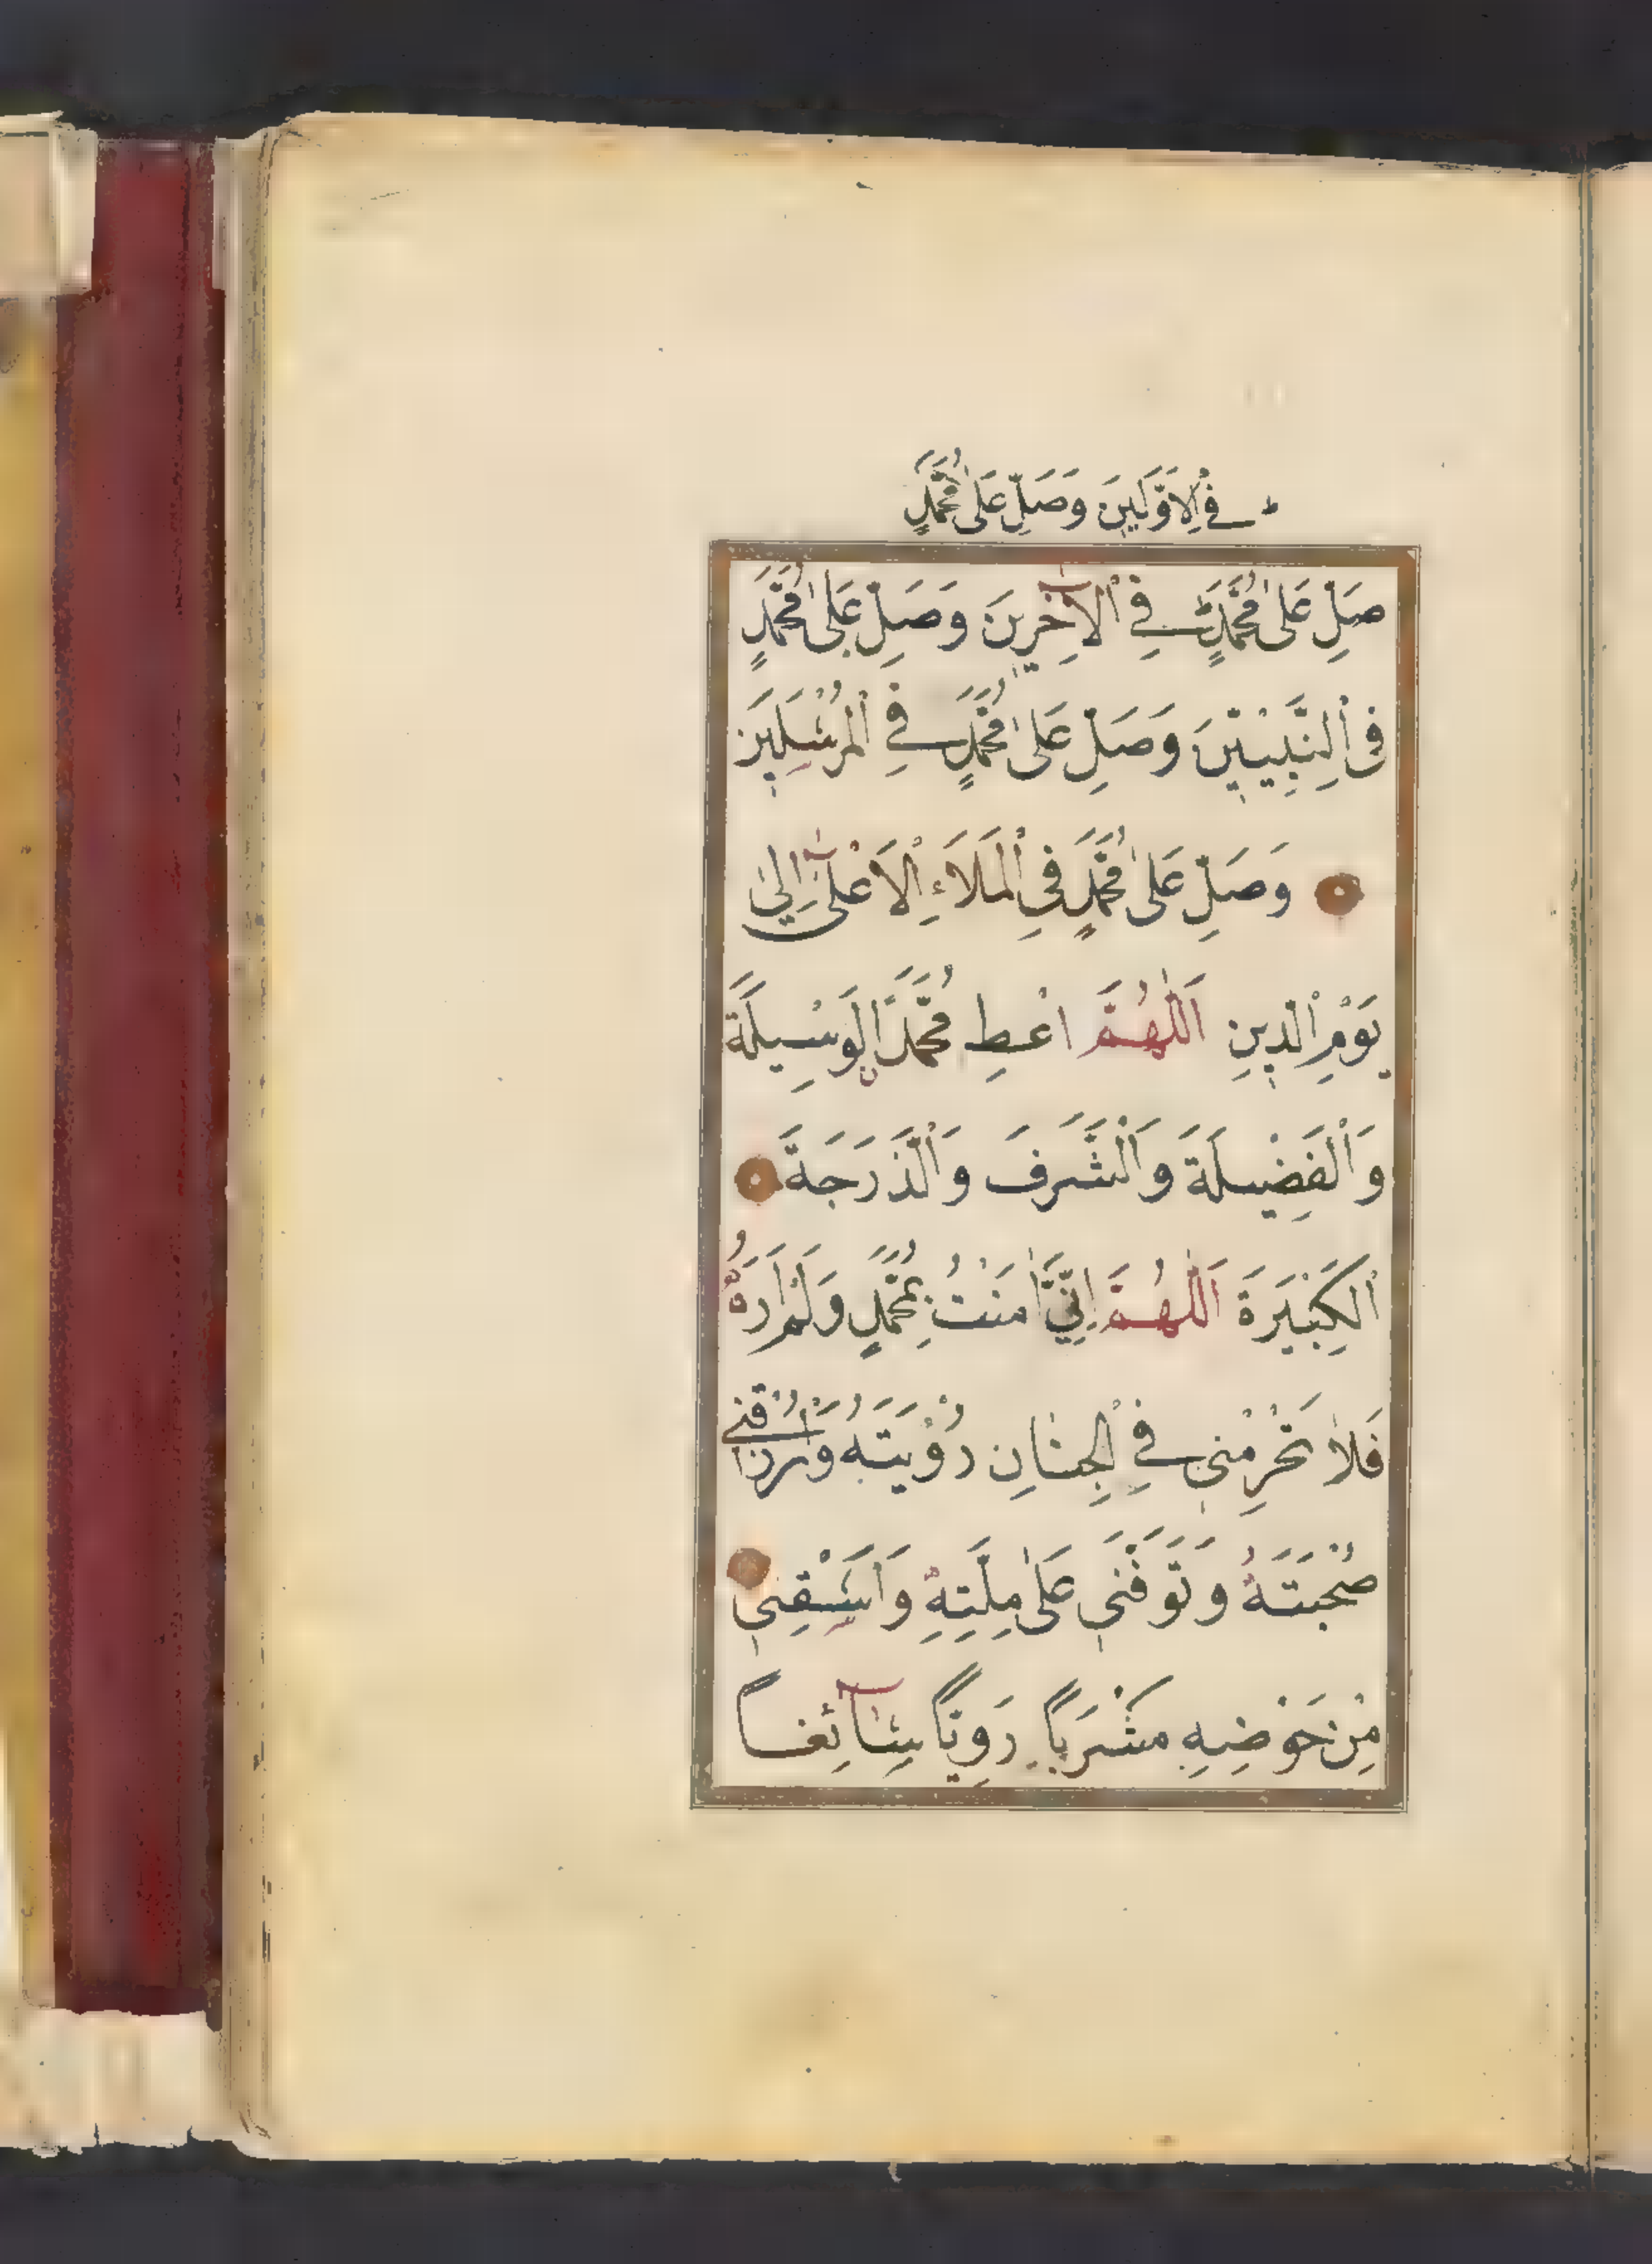 فِي الْاَوَّلِينَ وَصَلِّ عَلٰى مُحَمَّدٍ
صَلِّ عَلٰى مُحَمَّدٍ فِي الْاٰخِرِينَ وَصَلِّ عَلٰى مُحَمَّدٍ
فِي النَّبِيِّينَ وَصَلِّ عَلٰى مُحَمَّدٍ فِي الْمُرْسَلِينَ
وَصَلِّ عَلٰى مُحَمَّدٍ فِي الْمَلَاَءِ الْاَعْلٰى اِلٰى
يَوْمِ الدِّينِ اَللّٰهُمَّ اعْطِ مُحَمَّدًا الْوَسِيلَةَ
وَالْفَضِيلَةَ وَالشَّرَفَ وَالدَّرَجَةَ
الْكَبِيرَةَ اَللّٰهُمَّ اِنِّي اٰمَنْتُ بِمُحَمَّدٍ وَلَمْ اَرَهُ
فَلَا تَحْرِمْنِي فِي الْجِنَانِ رُؤْيَتَهُ وَارْزُقْنِي
صُحْبَتَهُ وَتَوَفَّنِي عَلٰى مِلَّتِهِ وَاسْقِنِي
مِنْ حَوْضِهِ مَشْرَبًا رَوِيًّا سَائِغًا